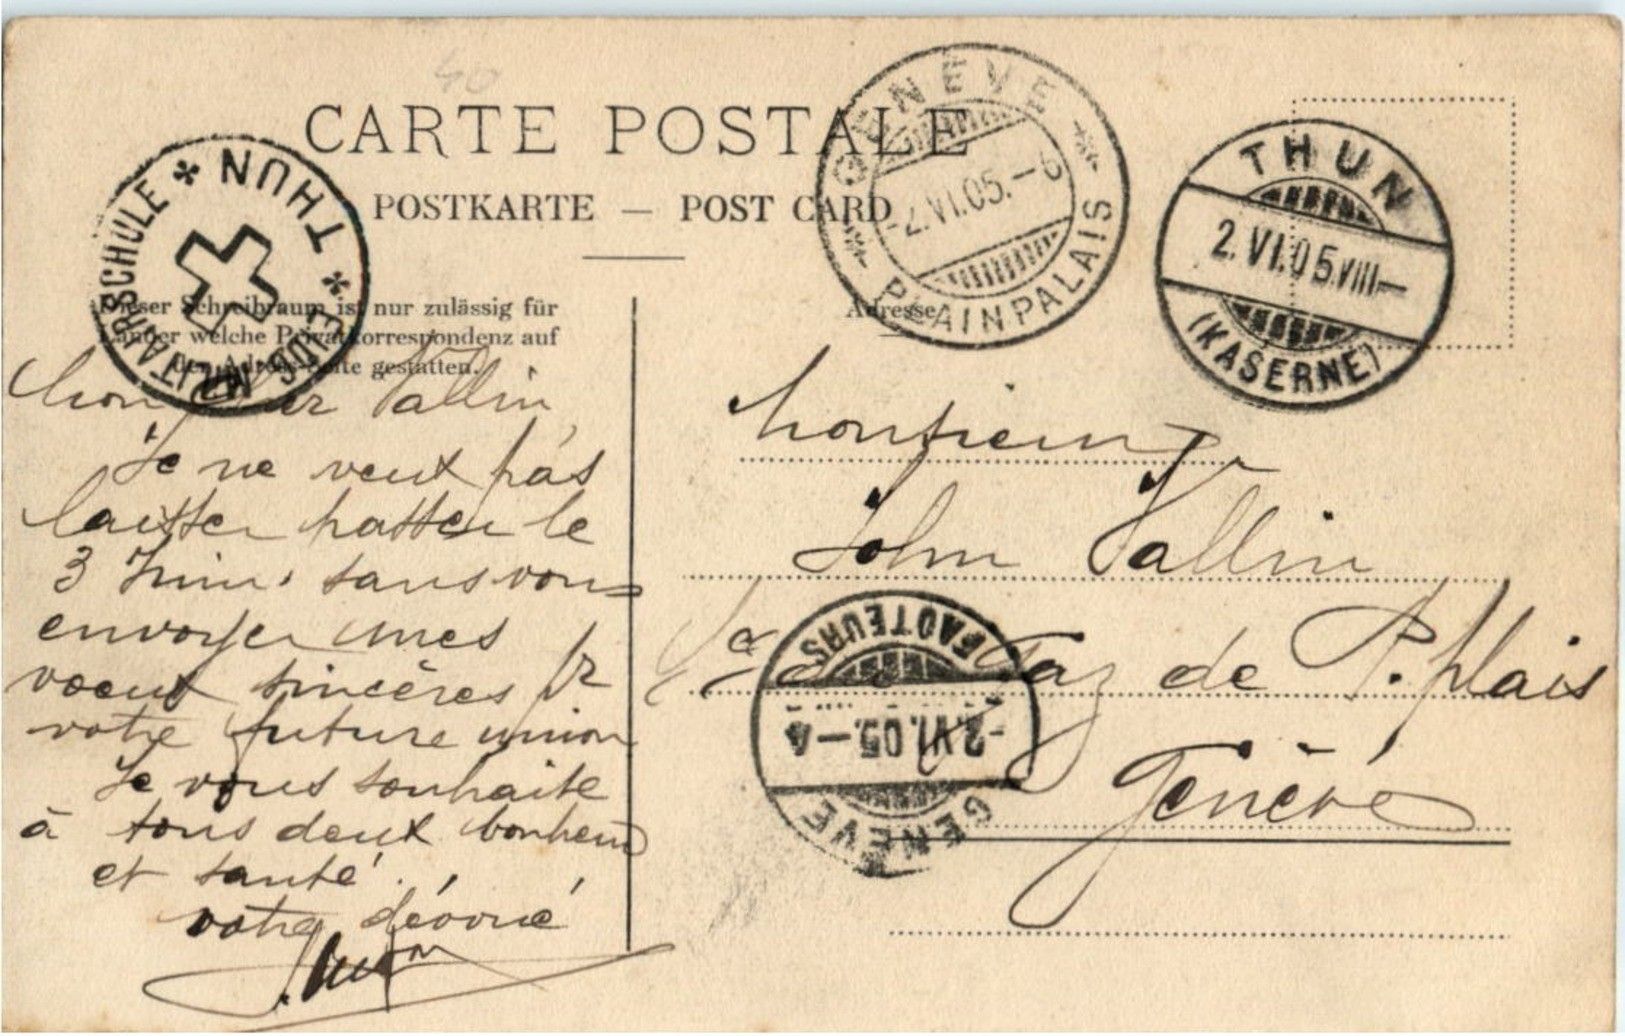 40
CARTE POSTALE
POSTKARTE — POST CARD
GENÈVE
-2.VI.05.-6
PLAINPALAIS
THUN
2.VI.05.VIII-
(KASERNE)
THUN
EIDG. MILITÄRSCHULE
Dieser Schreibraum ist nur zulässig für
Länder welche Privatkorrespondenz auf
der Adress-Seite gestatten.
Adresse
Monsieur Vallin,
Je ne veux pas
laisser passer le
3 Juin, sans vous
envoyer mes
voeux sincères pr
votre future union
Je vous souhaite
à tous deux bonheur
et santé.
votre dévoué
Monsieur
John Vallin
de P.plais
Genève
FACTEURS
-2.VI.05.-4
GENÈVE